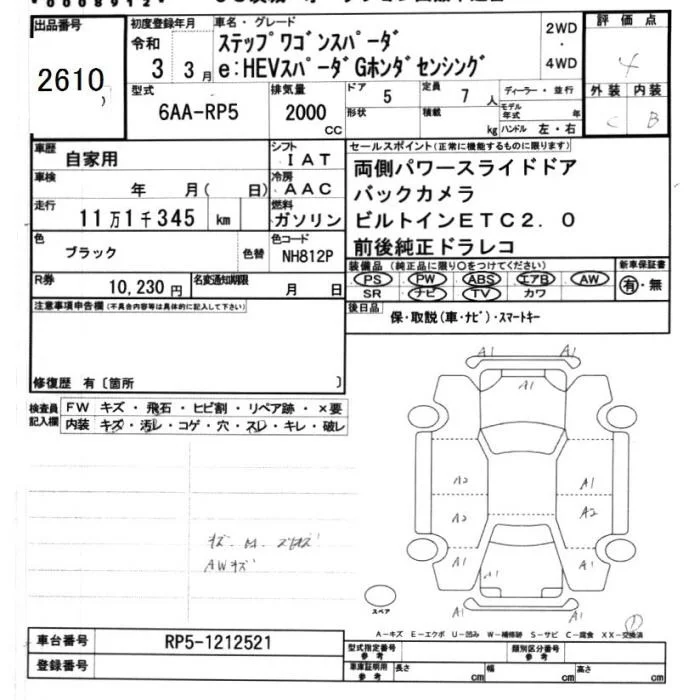 出品番号 初度登録年月 車名・グレード 評価点
2610
令和 3 3月
ステップワゴンスパーダ
e:HEVスパーダGホンダセンシング
2WD
・
4WD
4
外装 内装
C B
型式 6AA-RP5
排気量 2000 cc
ドア 5
形状
定員 7 人
積載 kg
ディーラー・並行
モデル年式 年
ハンドル 左・右
車歴 自家用
シフト IAT
車検 年 月( 日)
冷房 AAC
走行 11万1千345 km
燃料 ガソリン
色 ブラック 色替
色コード NH812P
R券 10,230円
名変通知期限 月 日
セールスポイント(正常に機能するものに限ります)
両側パワースライドドア
バックカメラ
ビルトインETC2.0
前後純正ドラレコ
装備品(純正品に限り○をつけてください) 新車保証書
PS PW ABS エアB AW 有・無
SR ナビ TV カワ
後日品 保・取説(車・ナビ)・スマートキー
注意事項申告欄(不具合内容等は具体的に記入して下さい)
修復歴 有〔箇所 〕
検査員記入欄
FW キズ・飛石・ヒビ割・リペア跡・×要
内装 キズ・汚レ・コゲ・穴・スレ・キレ・破レ
A1 A1
A1
A2 A1
A2 A2
A1 A1
A1
A1 A1
AWキズ
スペア
A−キズ E−エクボ U−凹み W−補修跡 S−サビ C−腐食 XX−交換済
車台番号 RP5-1212521
登録番号
型式指定番号 参考
類別区分番号 参考
車庫証明用 参考 長さ cm 幅 cm 高さ cm